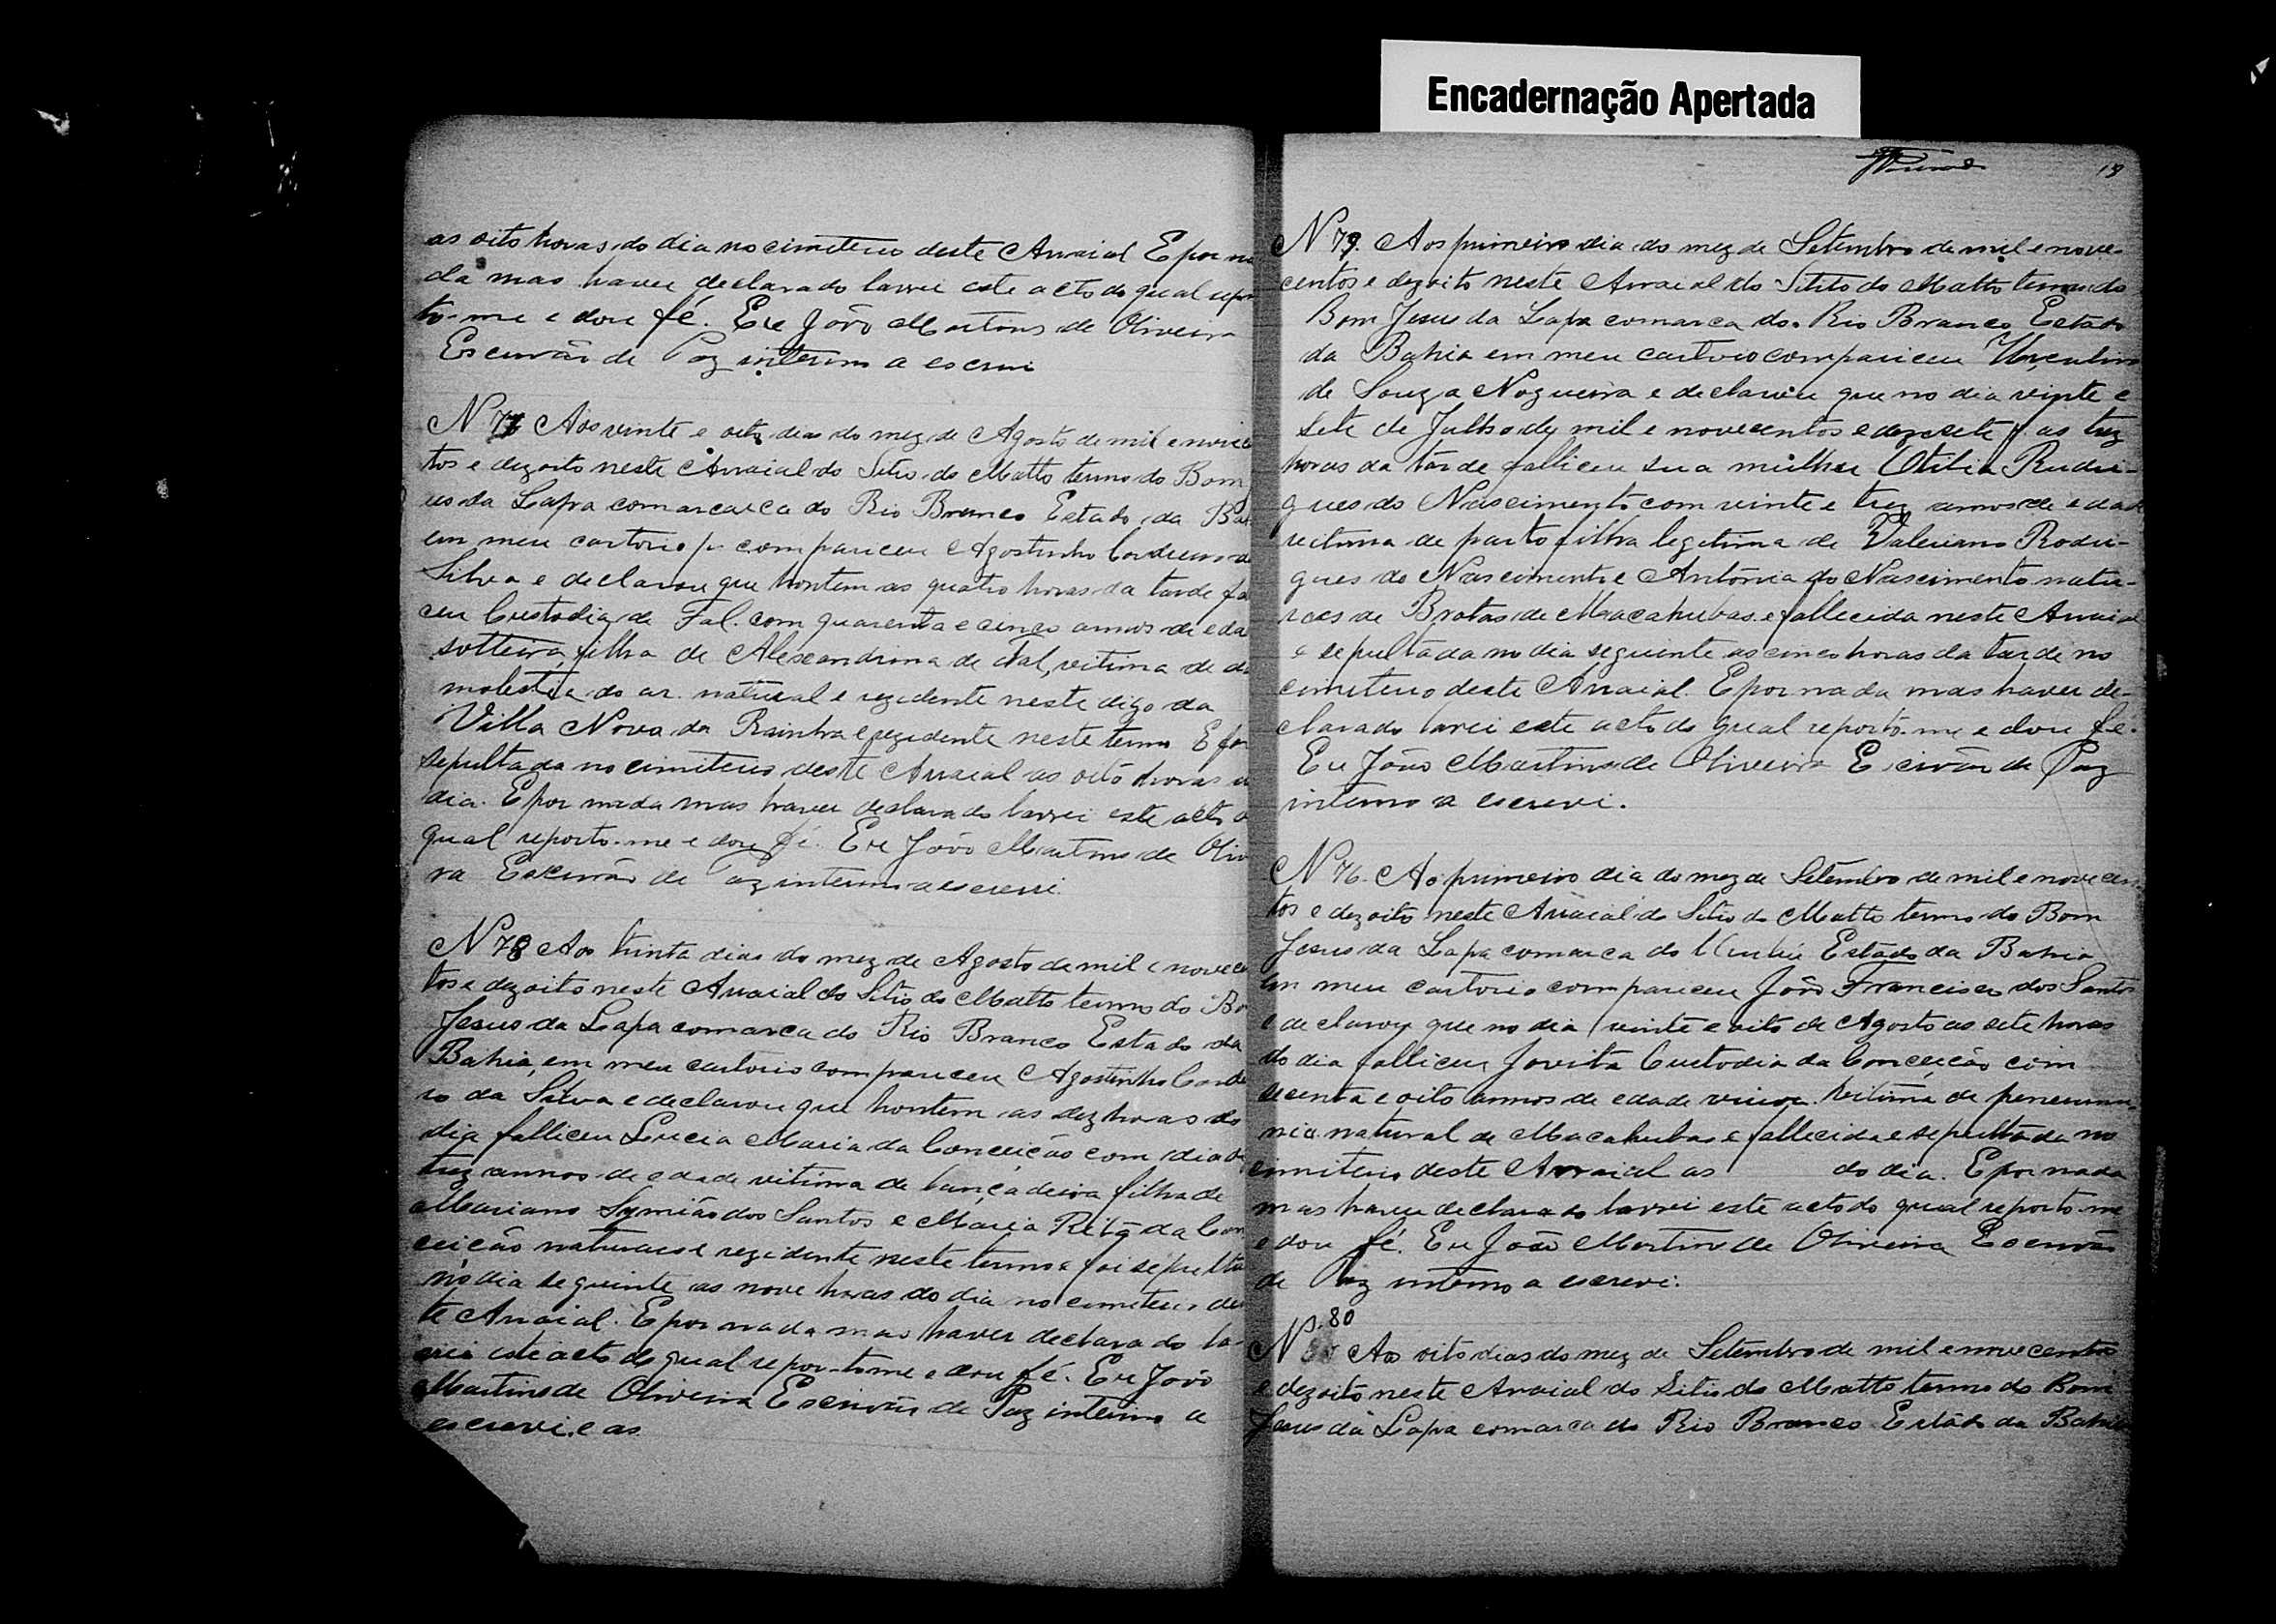 Encadernação Apertada
19
as oito horas do dia no cimiterio deste Arraial E por na
da mas haver declarado lavrei este acto do qual repor
to-me e dou fé. Eu João Martins de Oliveira
Escrivão de Paz interino a escrevi
N 77 Aos vinte e oito dias do mez de Agosto de mil e novecen
tos e dezoito neste Arraial do Sitio do Matto termo do Bom
us da Lapa comarca do Rio Branco Estado da Ba
em meu cartorio compareceu Agostinho Cordeiro da
Silva e declarou que hontem as quatro horas da tarde fa
ceu Custodia de Tal. com quarenta e cinco annos de eda
solteira filha de Alexandrina de tal, vitima de
molestia do ar. natural e rezidente neste digo da
Villa Nova da Rainha e rezidente neste termo E foi
sepultada no cimiterio deste Arraial as oito horas d
dia. E por nada mas haver declarado lavrei este acto d
qual reporto-me e dou fé. Eu João Martins de Oliv
ra Escrivão de Paz interino a escrevi
N 78 Aos trinta dias do mez de Agosto de mil e novecen
tos e dezoito neste Arraial do Sitio do Matto termo do Bo
Jesus da Lapa comarca do Rio Branco Estado da
Bahia, em meu cartorio compareceu Agostinho Corde
ro da Silva e declarou que hontem as dez horas do
dia falliceu Lucia Maria da Conceição com idade
trez annos de edade vitima de lançadeira filha de
Mariano Symião dos Santos e Maria Rita da Con
ceição naturaes e rezidente neste termo e foi sepulta
no dia seguinte as nove horas do dia no cimiterio des
te Arraial. E por nada mas haver declarado la
vrei este acto do qual repor-to me e dou fé. Eu João
Martins de Oliveira Escrivão de Paz interino a
escrevi. e as
N 79. Aos primeiro dia do mez de Setembro de mil e nove-
centos e dezoito neste Arraial do Sitito do Matto termo do
Bom Jesus da Lapa comarca do Rio Branco Estado
da Bahia em meu cartorio compariceu
de Souza Nogueira e declarou que no dia vinte e
sete de Julho de mil e novecentos e dezesete as trez
horas da tarde falliceu sua mulher Otilia Rudri-
gues do Nascimento com vinte e trez annos de edade
vitima de parto filha legitima de Valeriano Rodri-
gues do Nascimento e Antônia do Nascimento natu-
raes de Brotas de Macahubas e fallecida neste Arraial
e sepultada no dia seguinte as cinco horas da tarde no
cimiterio deste Arraial. E por nada mas haver de-
clarado lavrei este acto do qual reporto-me e dou fé.
Eu João Martins de Oliveira Escivão de Paz
interino a escrevi.
N 76. Ao primeiro dia do mez de Setembro de mil e novecen-
tos e dezoito neste Arraial do Sitio do Matto termo do Bom
Jesus da Lapa comarca do Urubú Estado da Bahia
em meu cartorio compareceu João Francisco dos Santos
e declarou que no dia vinte e oito de Agosto as sete horas
do dia falliceu Jovita Custodia da Conceição com
secenta e oito annos de edade viuva. vitima de peneumo
nia natural de Macahubas e fallecida e sepultada no
cimiterio deste Arraial as do dia. E por nada
mas haver declarado lavrei este acto do qual reporto-me
e dou fé. Eu João Martins de Oliveira Escrivão
de Paz interino a escrevi.
N. 80
Ao oito dias do mez de Setembro de mil e novecentos
e dezoito neste Arraial do Sitio do Matto termo do Bom
Jesus da Lapa comarca do Rio Branco Estado da Bahia